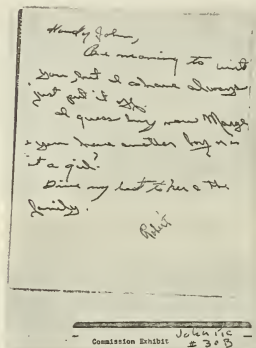 Howdy John,
Been meaning to write
you, but I have always
just put it off.
I guess by now Marge
& you have another boy or is
it a girl?
Give my best to her & the
family.
Robert
John Pic
Commission Exhibit # 30B